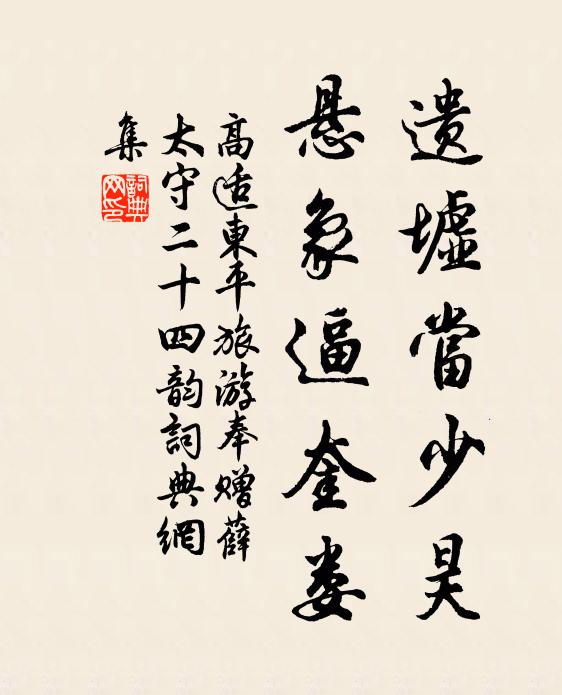 遗墟當少昊
悬象逼奎娄
高适東平旅游奉赠薛
太守二十四韵詞典網
集
詞典
网印